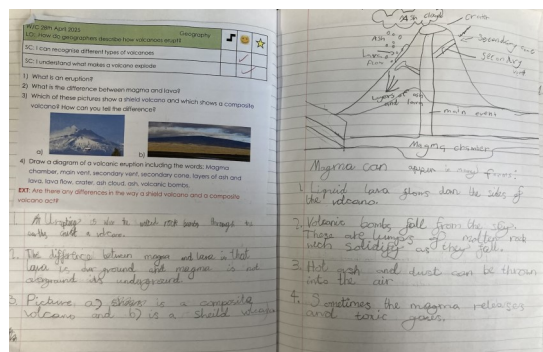 W/C 28th April 2025
Geography
LO: How do geographers describe how volcanoes erupt?
SC: I can recognise different types of volcanoes
SC: I understand what makes a volcano explode
1) What is an eruption?
2) What is the difference between magma and lava?
3) Which of these pictures show a shield volcano and which shows a composite
volcano? How can you tell the difference?
a)
b)
4) Draw a diagram of a volcanic eruption including the words: Magma
chamber, main vent, secondary vent, secondary cone, layers of ash and
lava, lava flow, crater, ash cloud, ash, volcanic bombs.
EXT: Are there any differences in the way a shield volcano and a composite
volcano act?
1.
is
rock
through
2. The difference between magma and lava is that
lava is ground and magma is not
its underground.
3. Picture a) is a composite
volcano and b) is a sheild
Ash cloud
crater
Ash
Secondary
Secondary
Lava
flow
layers of ash
and lava
main
Magma chamber
Magma can appear in forms:
1. Liquid lava flows down the sides of
the volcano.
2. Volcanic bombs fall from the sky.
These are lumps of rock
which solidify as they fall.
3. Hot ash and dust can be thrown
into the air
4. Sometimes the magma releases
and toxic gases.